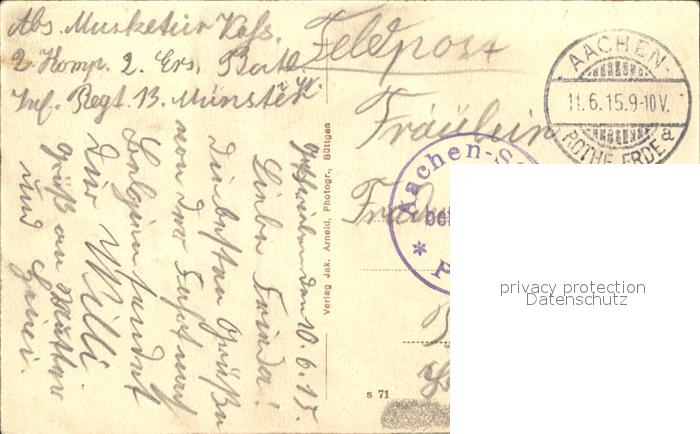 Abs. Musketier Kess.
2 Komp. 2. Ers. Batl.
Inf. Regt. 13. Münster i/W.
Feldpost
AACHEN-
11.6.15.9-10V.
ROTHE ERDE a
Fräulein
Aachen-S
bef
* P
den 10.6.15.
Liebe Frieda!
Die besten Grüße
von der Fahrt nach
Belgien sendet
Dir Willi
Gruß an Mutter
und Heinrich
Verlag Jak. Arnold, Photogr., Büttgen
s 71
privacy protection
Datenschutz